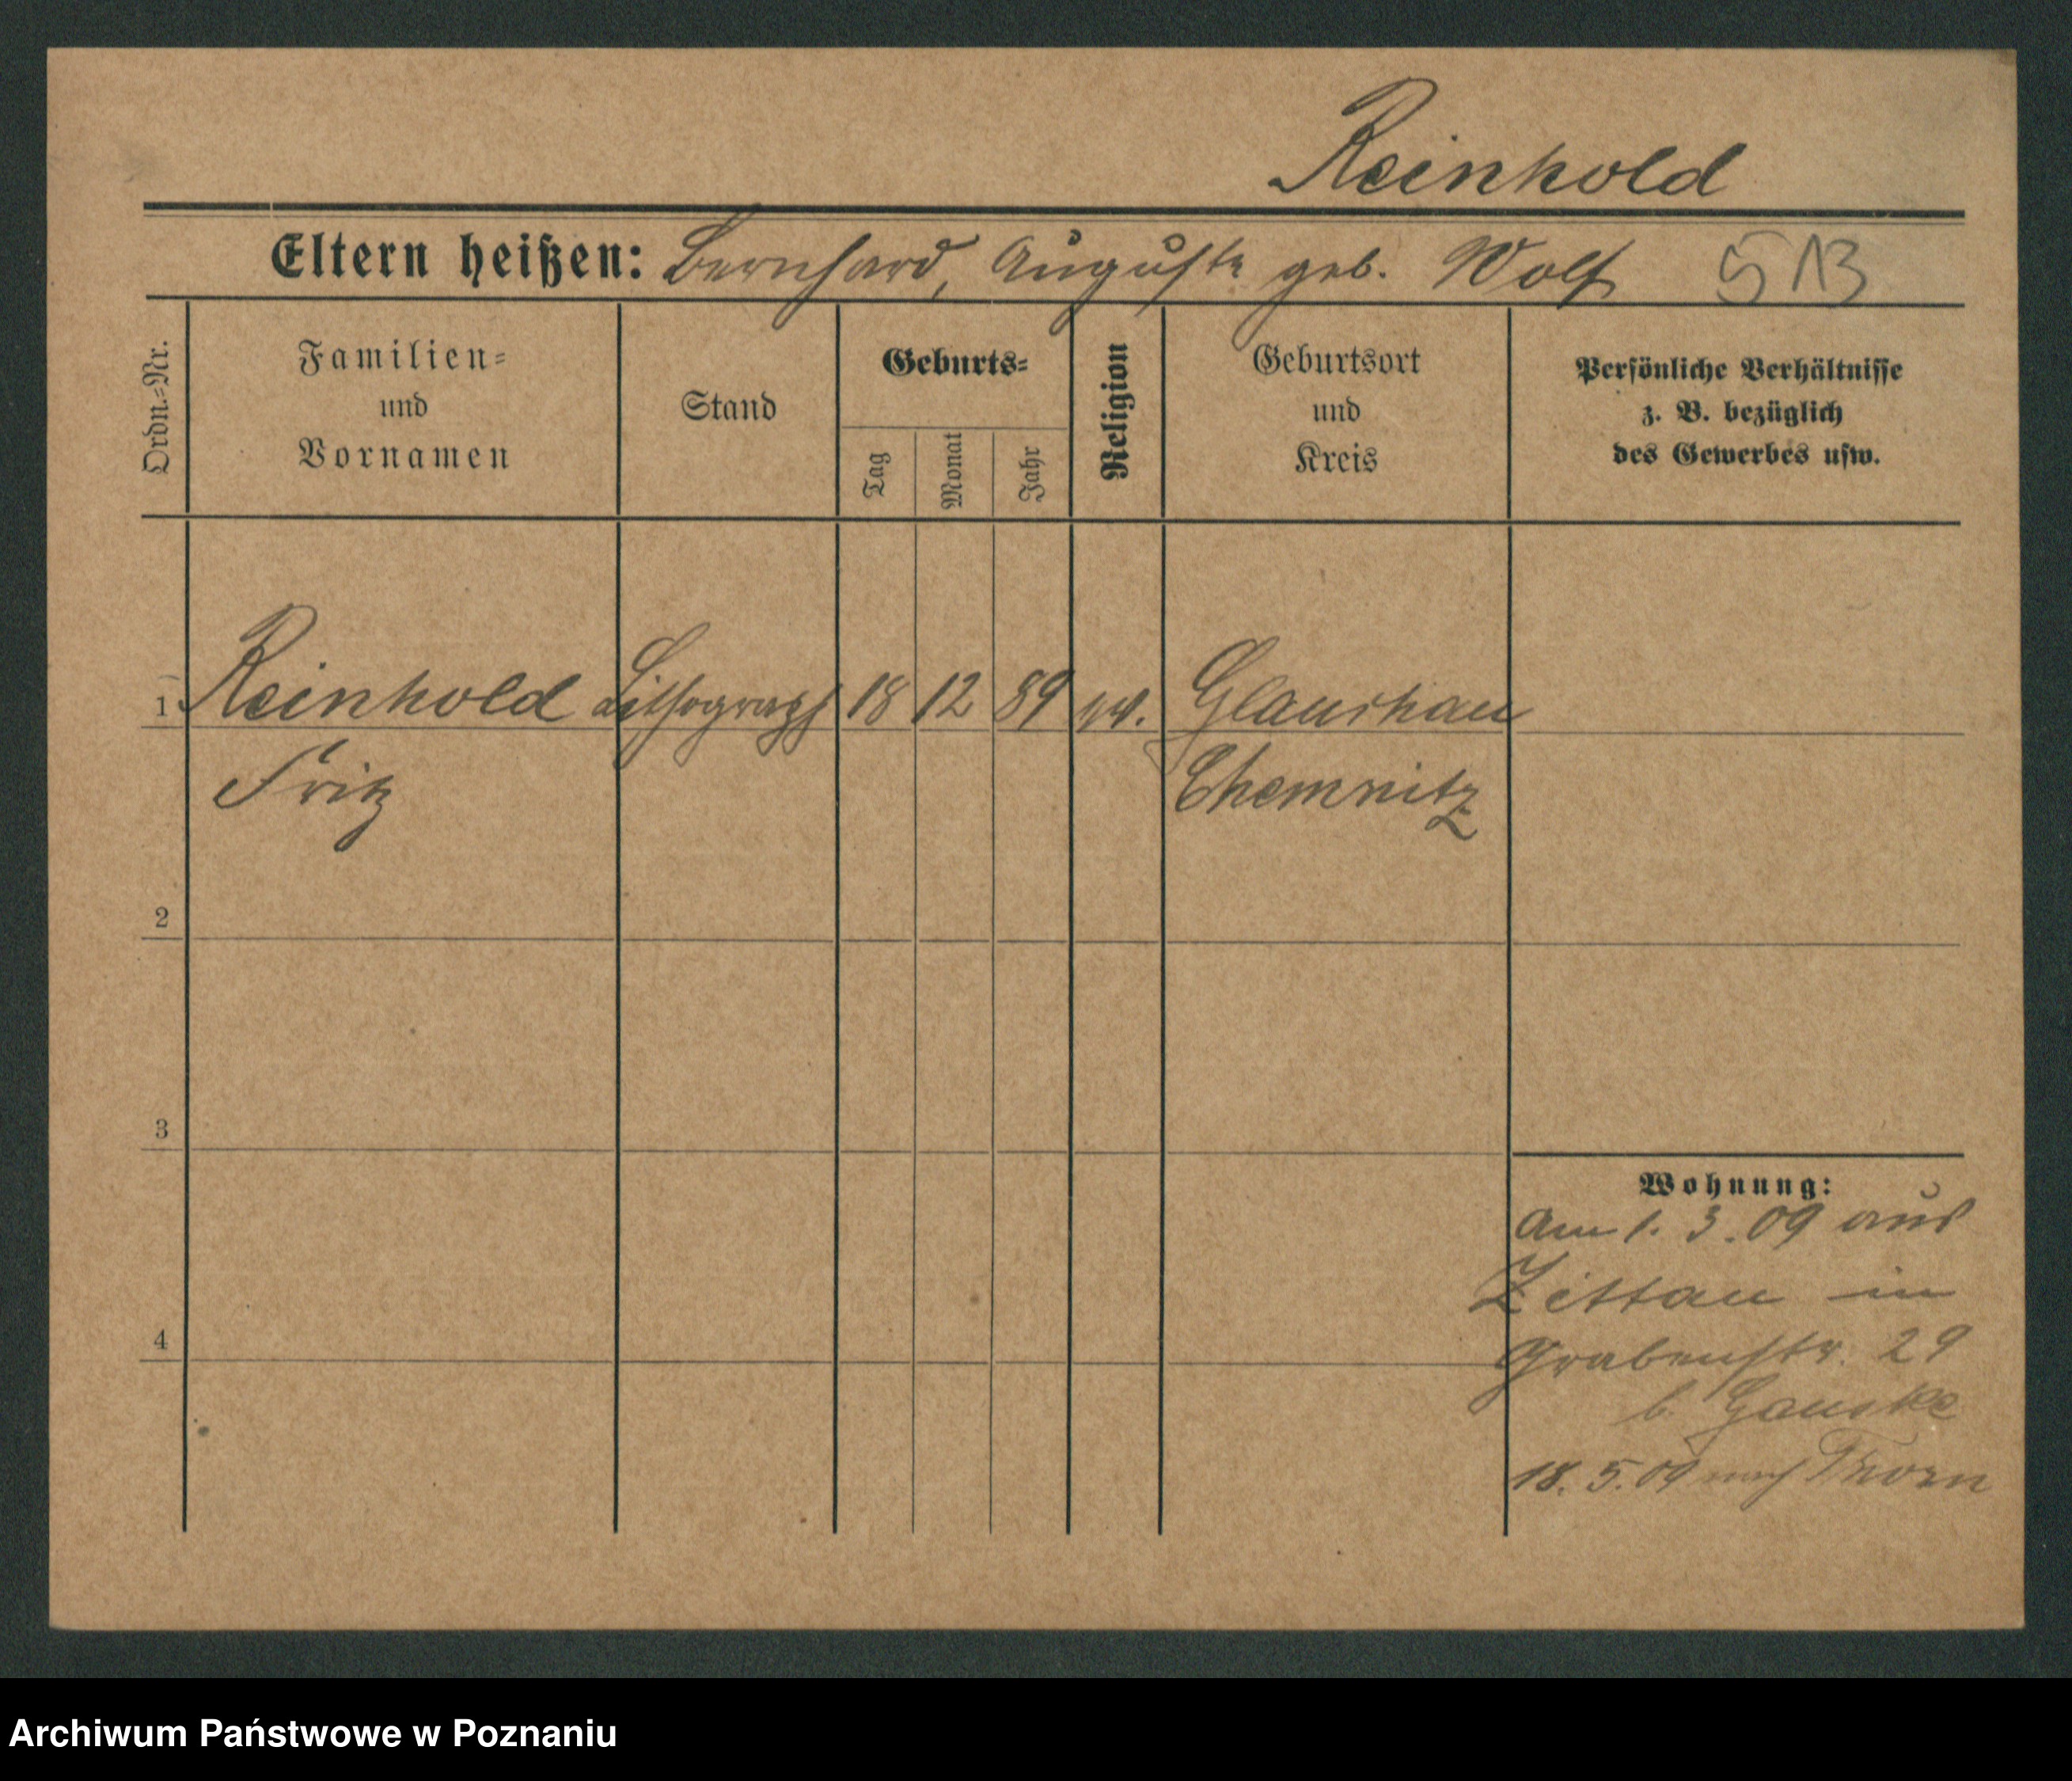 Reinhold
Eltern heißen: Bernhard, Auguste geb. Wolf 513
Ordn.-Nr.
Familien-
und
Vornamen
Stand
Geburts-
Tag
Monat
Jahr
Religion
Geburtsort
und
Kreis
Persönliche Verhältnisse
z. B. bezüglich
des Gewerbes usw.
1 Reinhold Lithograph 18 12 89 ev. Glauchau
Fritz Chemnitz
2
3
Wohnung:
Am 1. 3. 09 aus
Zittau in
4
Grabenstr. 29
b.
18. 5. 09 nach Thorn
Archiwum Państwowe w Poznaniu